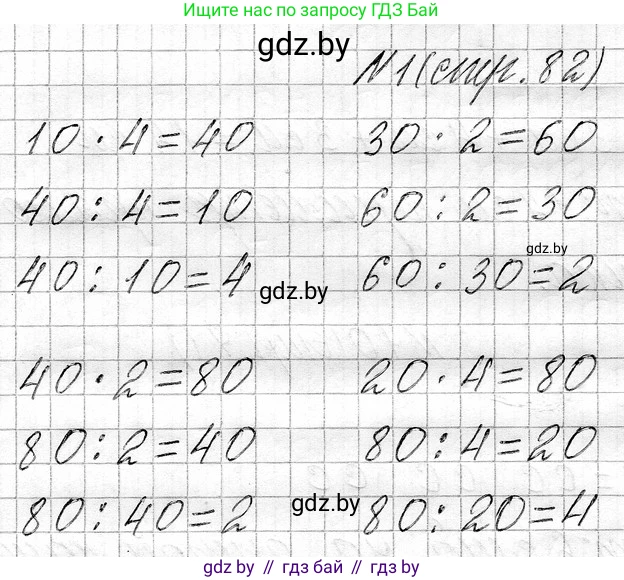 Ищите нас по запросу ГДЗ Бай
gdz.by
№1 (стр. 82)
10 · 4 = 40
30 : 2 = 60
40 : 4 = 10
60 : 2 = 30
40 : 10 = 4
gdz.by
60 : 30 = 2
gdz.by
40 · 2 = 80
20 · 4 = 80
80 : 2 = 40
80 : 4 = 20
80 : 40 = 2
gdz.by
80 : 20 = 4
gdz.by // гдз бай // gdz.by